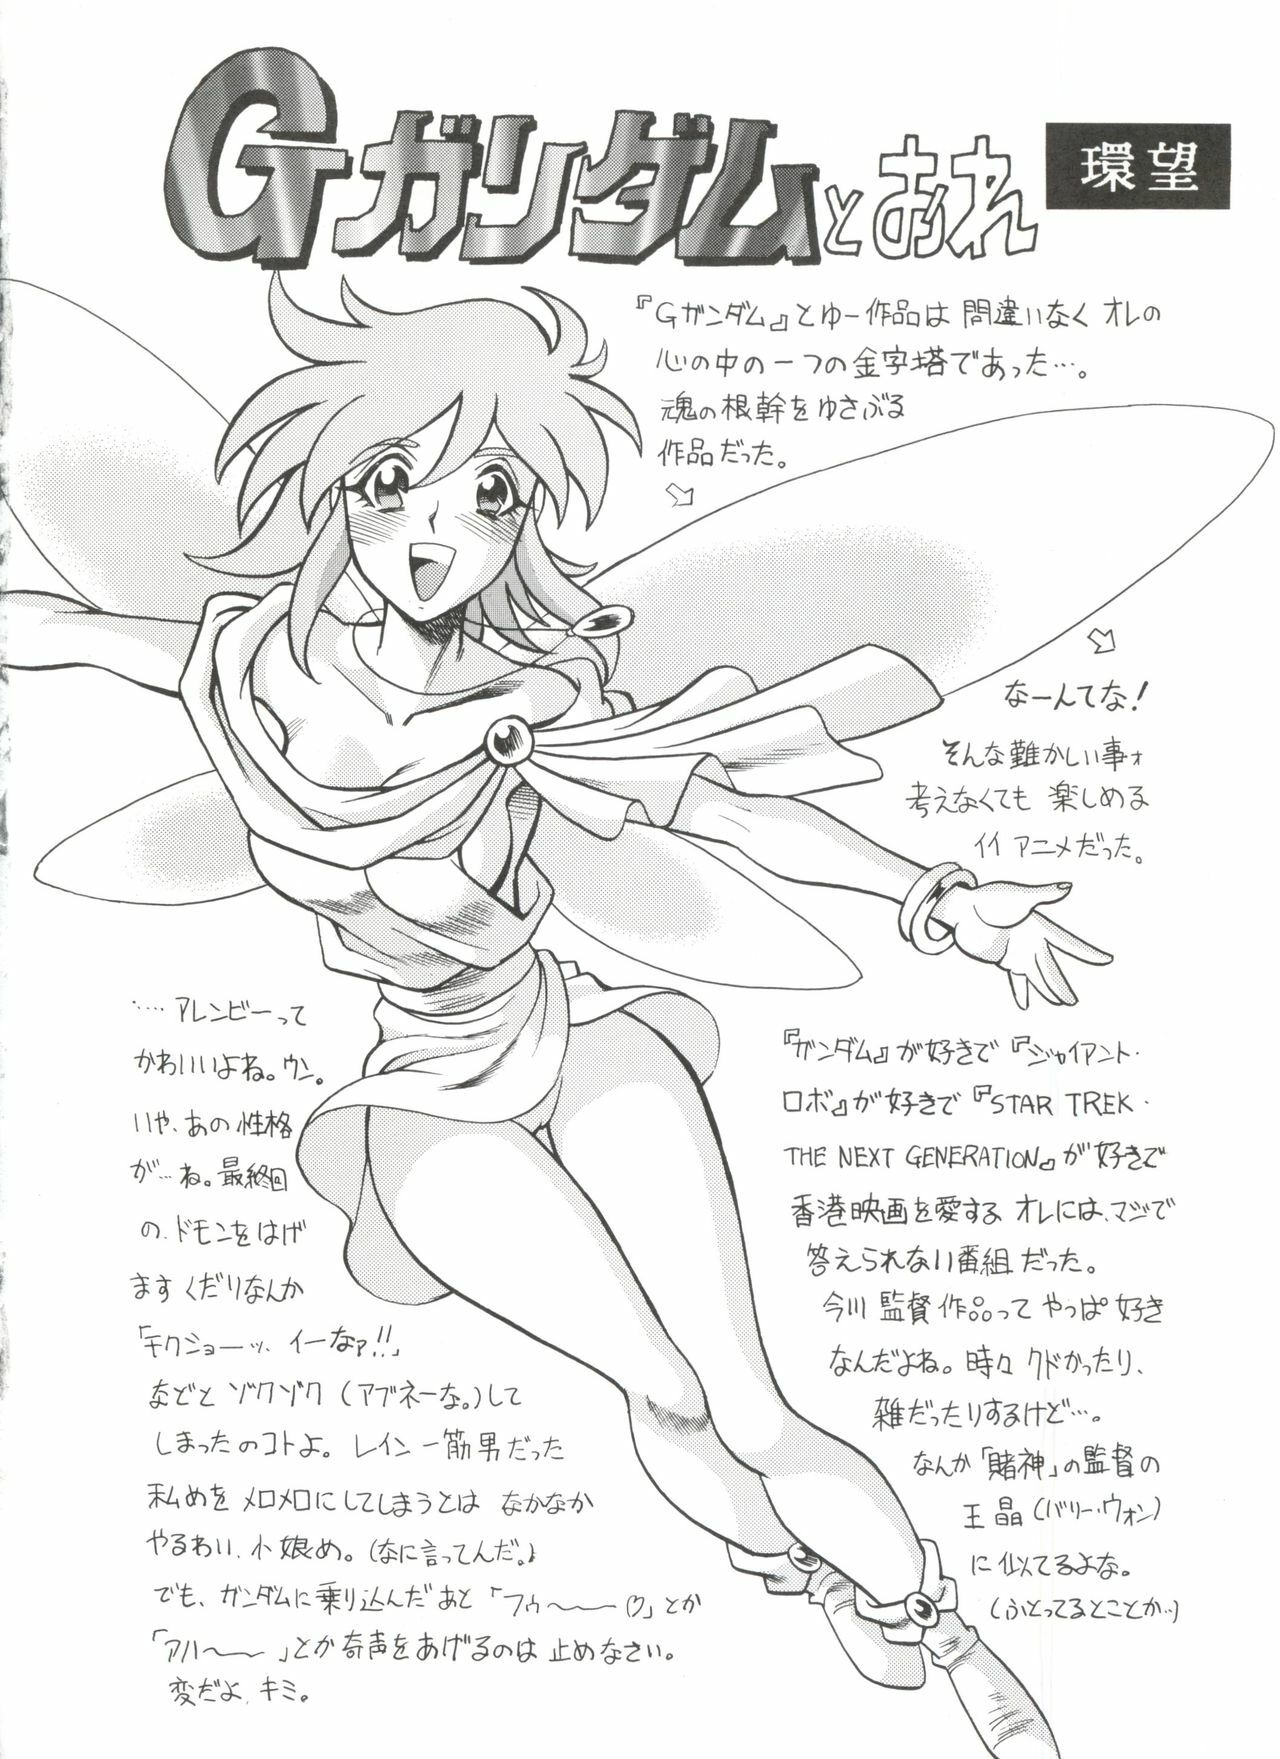 Gガンダムとおれ
環望
『Gガンダム』とゆー作品は 間違いなく オレの
心の中の一つの金字塔であった…。
魂の根幹をゆさぶる
作品だった。
なーんてな!
そんな難かしい事ォ
考えなくても 楽しめる
イイ アニメだった。
…‥ アレンビーって
かわいいよね。ウン。
いや、あの 性格
が…ね。最終回
の、ドモンをはげ
ます くだりなんか
「チクショーッ、イーなァ!!」
などと ゾクゾク (アブネーな。)して
しまったのコトよ。レイン一筋男だった
私めを メロメロにしてしまうとは なかなか
やるわい、小娘め。(なに言ってんだ。)
でも、ガンダムに乗り込んだあと 「フゥ〜〜〜♡」とか
「アハ〜〜」とか奇声をあげるのは 止めなさい。
変だよ、キミ。
『ガンダム』が好きで『ジャイアント・
ロボ』が好きで『STAR TREK・
THE NEXT GENERATION』が好きで
香港映画を愛する オレには、マジで
答えられない番組だった。
今川 監督 作品って やっぱ 好き
なんだよね。時々 クドかったり、
雑だったりするけど…。
なんか「賭神」の監督の
王 晶 (バリー・ウォン)
に 似てるよな。
(ふとってるとことか‥)